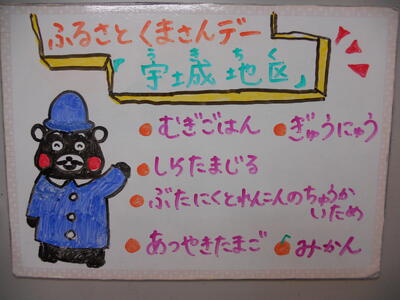 ふるさとくまさんデー
うきちく
「宇城地区」
むぎごはん ぎゅうにゅう
しらたまじる
ぶたにくとれんこんのちゅうか
いため
あつやきたまご みかん